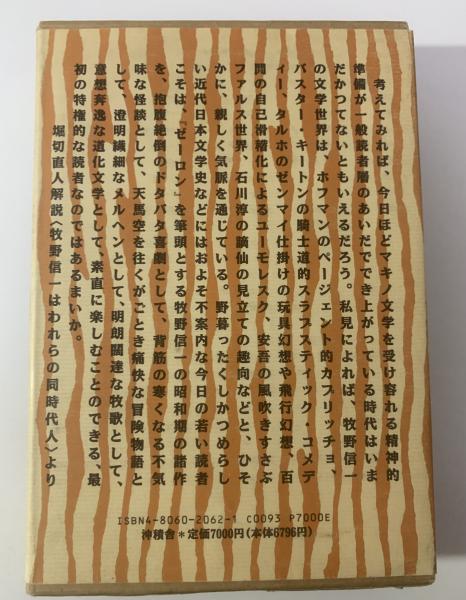 考えてみれば、今日ほどマキノ文学を受け容れる精神的
準備が一般読者層のあいだででき上がっている時代はいま
だかつてないともいえるだろう。私見によれば、牧野信一
の文学世界は、ホフマンのページェント的カプリッチョ、
バスター・キートンの騎士道的スラプスティック・コメデ
ィー、タルホのゼンマイ仕掛けの玩具幻想や飛行幻想、百
閒の自己滑稽化によるユーモレスク、安吾の風吹きすさぶ
ファルス世界、石川淳の謫仙の見立ての趣向などと、ひそ
かに、親しく気脈を通じている。野暮ったくしかつめらし
い近代日本文学史などにはおよそ不案内な今日の若い読者
こそは、『ゼーロン』を筆頭とする牧野信一の昭和期の諸作
を、抱腹絶倒のドタバタ喜劇として、背筋の寒くなる不気
味な怪談として、天馬空を往くがごとき痛快な冒険物語と
して、澄明繊細なメルヘンとして、明朗闊達な牧歌として、
意想奔逸な道化文学として、素直に楽しむことのできる、最
初の特権的な読者なのではあるまいか。
堀切直人解説〈牧野信一はわれらの同時代人〉より
ISBN4-8060-2062-1 C0093 P7000E
沖積舎*定価7000円(本体6796円)